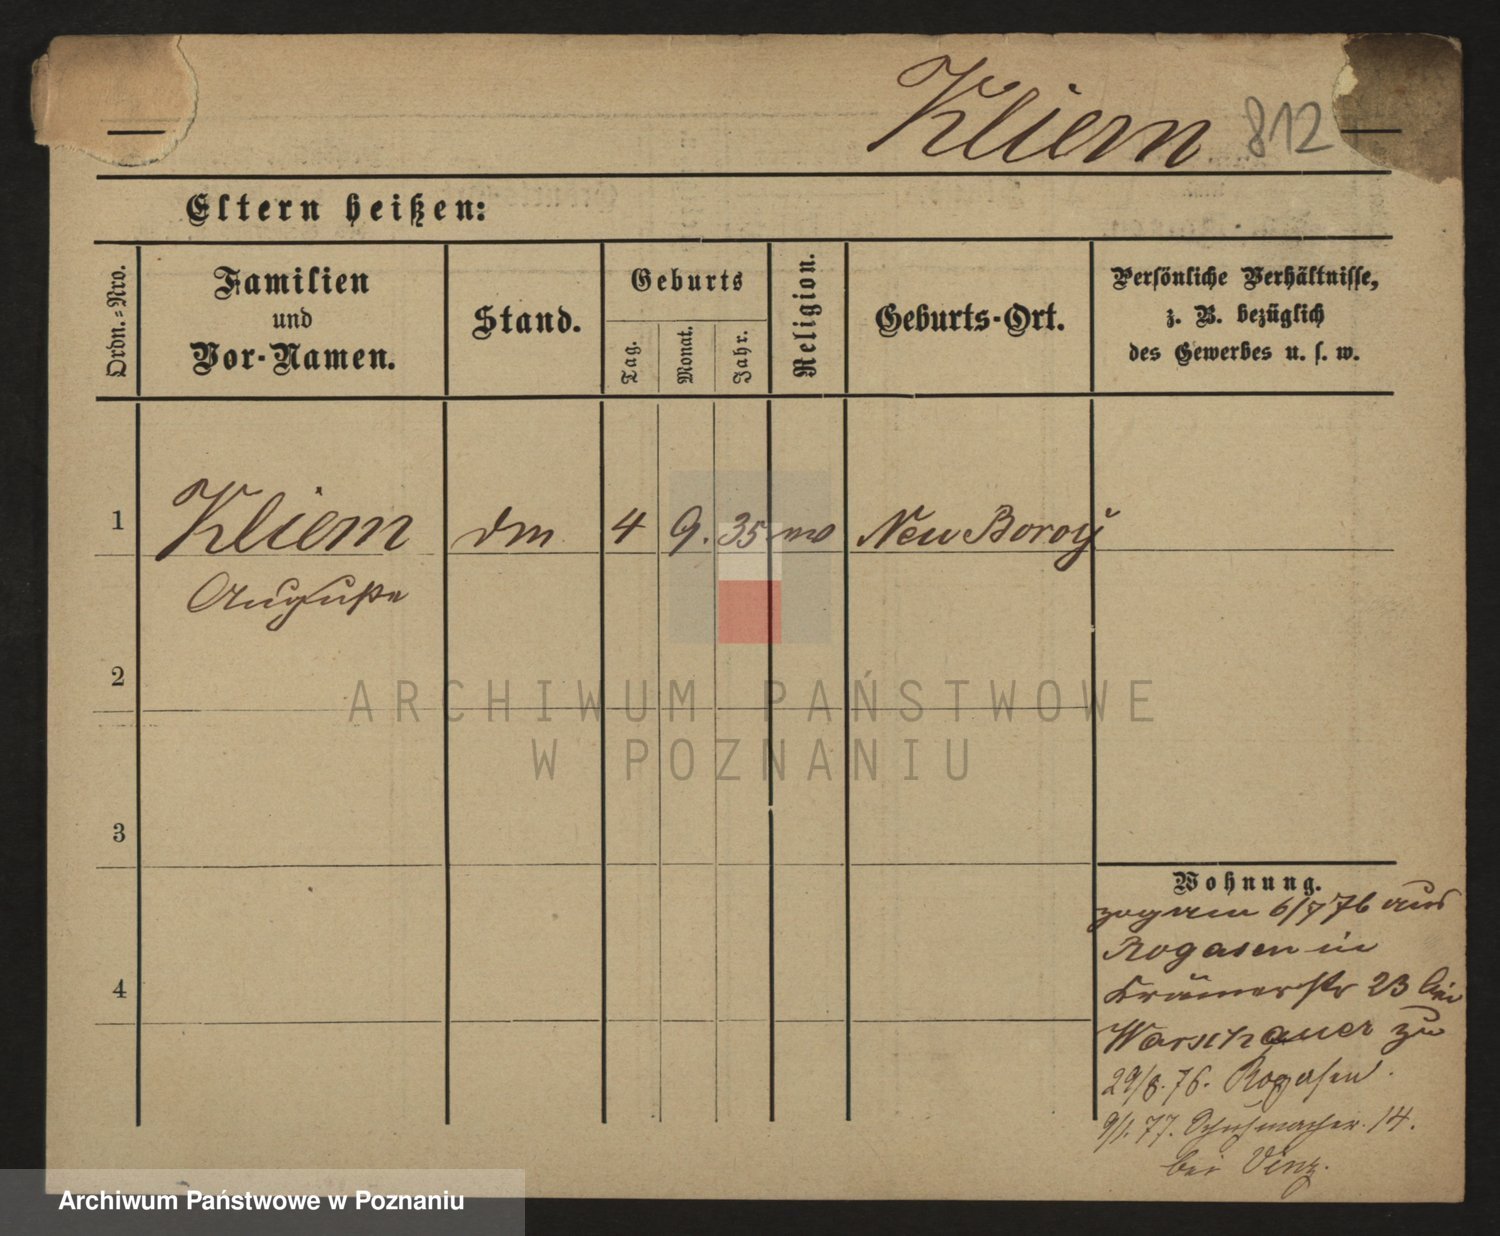 Kliem 812
Eltern heißen:
Ordn.-Nro.
Familien
und
Vor-Namen.
Stand.
Geburts
Tag.
Monat.
Jahr.
Religion.
Geburts-Ort.
Persönliche Verhältnisse,
z. B. bezüglich
des Gewerbes u. s. w.
1 Kliem 4 9. 35 Neu Boroÿ
Auguste
2
3
4
Wohnung.
zog am 6/7 76 aus
Rogasen in
Krämerstr 23 bei
Warschauer zu
29/8. 76. Rogasen.
9/1. 77. Schuhmacher. 14.
bei Vinz.
ARCHIWUM PAŃSTWOWE
W POZNANIU
Archiwum Państwowe w Poznaniu